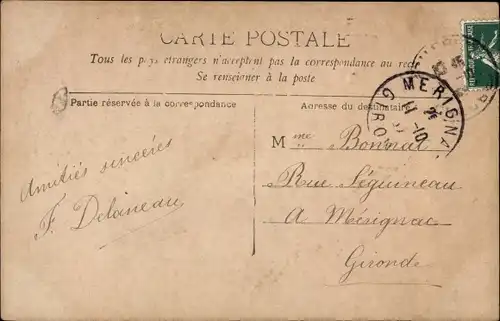 CARTE POSTALE
Tous les pays étrangers n'acceptent pas la correspondance au rec
Se renseigner à la poste
Partie réservée à la correspondance
Adresse du destinataire
MERIGNA
11-10
Amitiés sincères
F. Delaneau
Mme Bonnat
Rue Séguineau
A Mérignac
Gironde